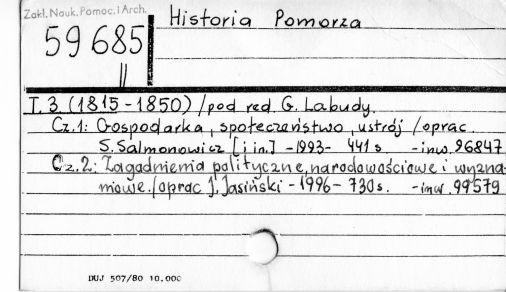 Zakł. Nauk. Pomoc. i Arch.
Historia Pomorza
59 685
||
T. 3 (1815-1850) / pod red G. Labudy.
Cz.1: Gospodarka, społeczeństwo, ustrój / oprac.
S. Salmonowicz [i in.] - 1993 - 441 s. - inw. 96847
Cz.2: Zagadnienia polityczne, narodowościowe i wyzna-
niowe. / oprac J. Jasiński - 1996 - 730 s. - inw. 99579
DUJ 507/80 10.000